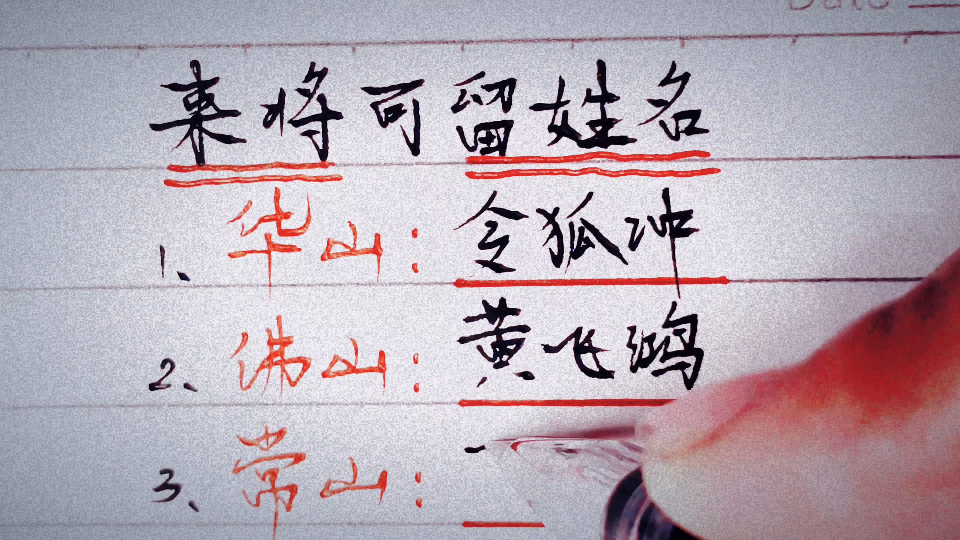 Date
来将可留姓名
1、华山：令狐冲
2、佛山：黄飞鸿
3、常山：